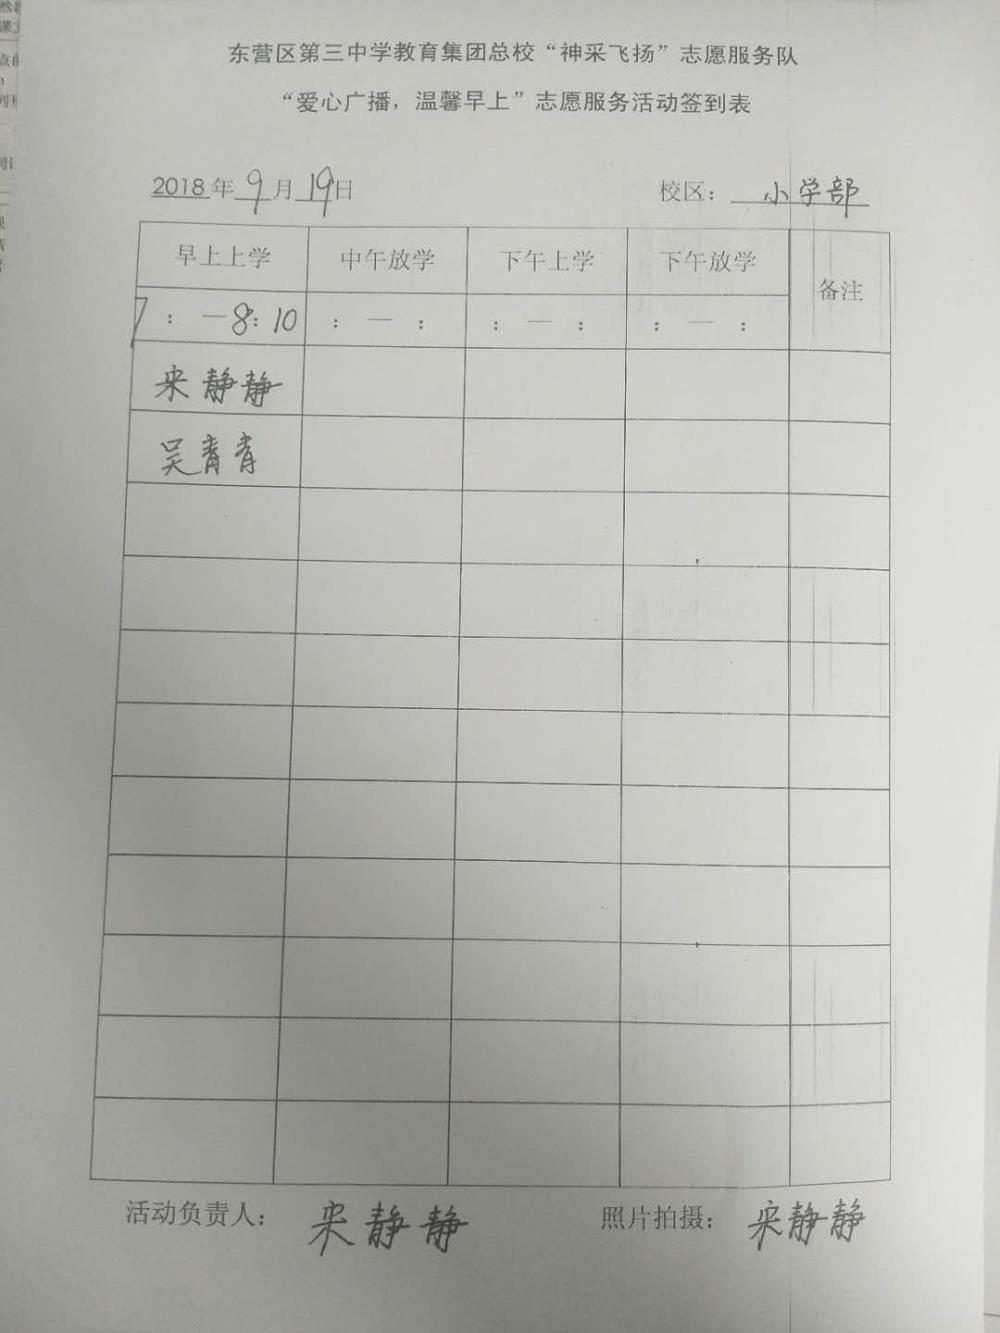 东营区第三中学教育集团总校“神采飞扬”志愿服务队
“爱心广播，温馨早上”志愿服务活动签到表
2018年9月19日 校区：小学部
早上上学 中午放学 下午上学 下午放学 备注
7：—8：10 ：—： ：—： ：—：
宋静静
吴青青
活动负责人：宋静静 照片拍摄：宋静静